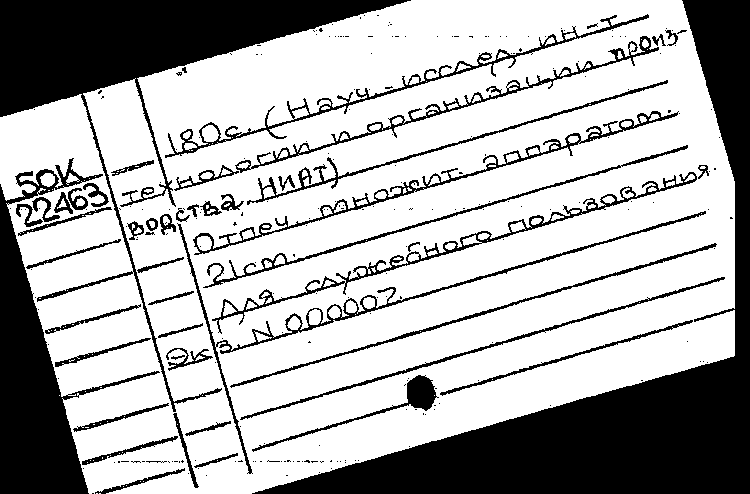 180с. (Науч.-исслед. ин-т
технологии и организации произ-
водства, НИАТ)
50К
22463
Отпеч. множит. аппаратом.
21cm.
Для служебного пользования.
Экз. N 000007.